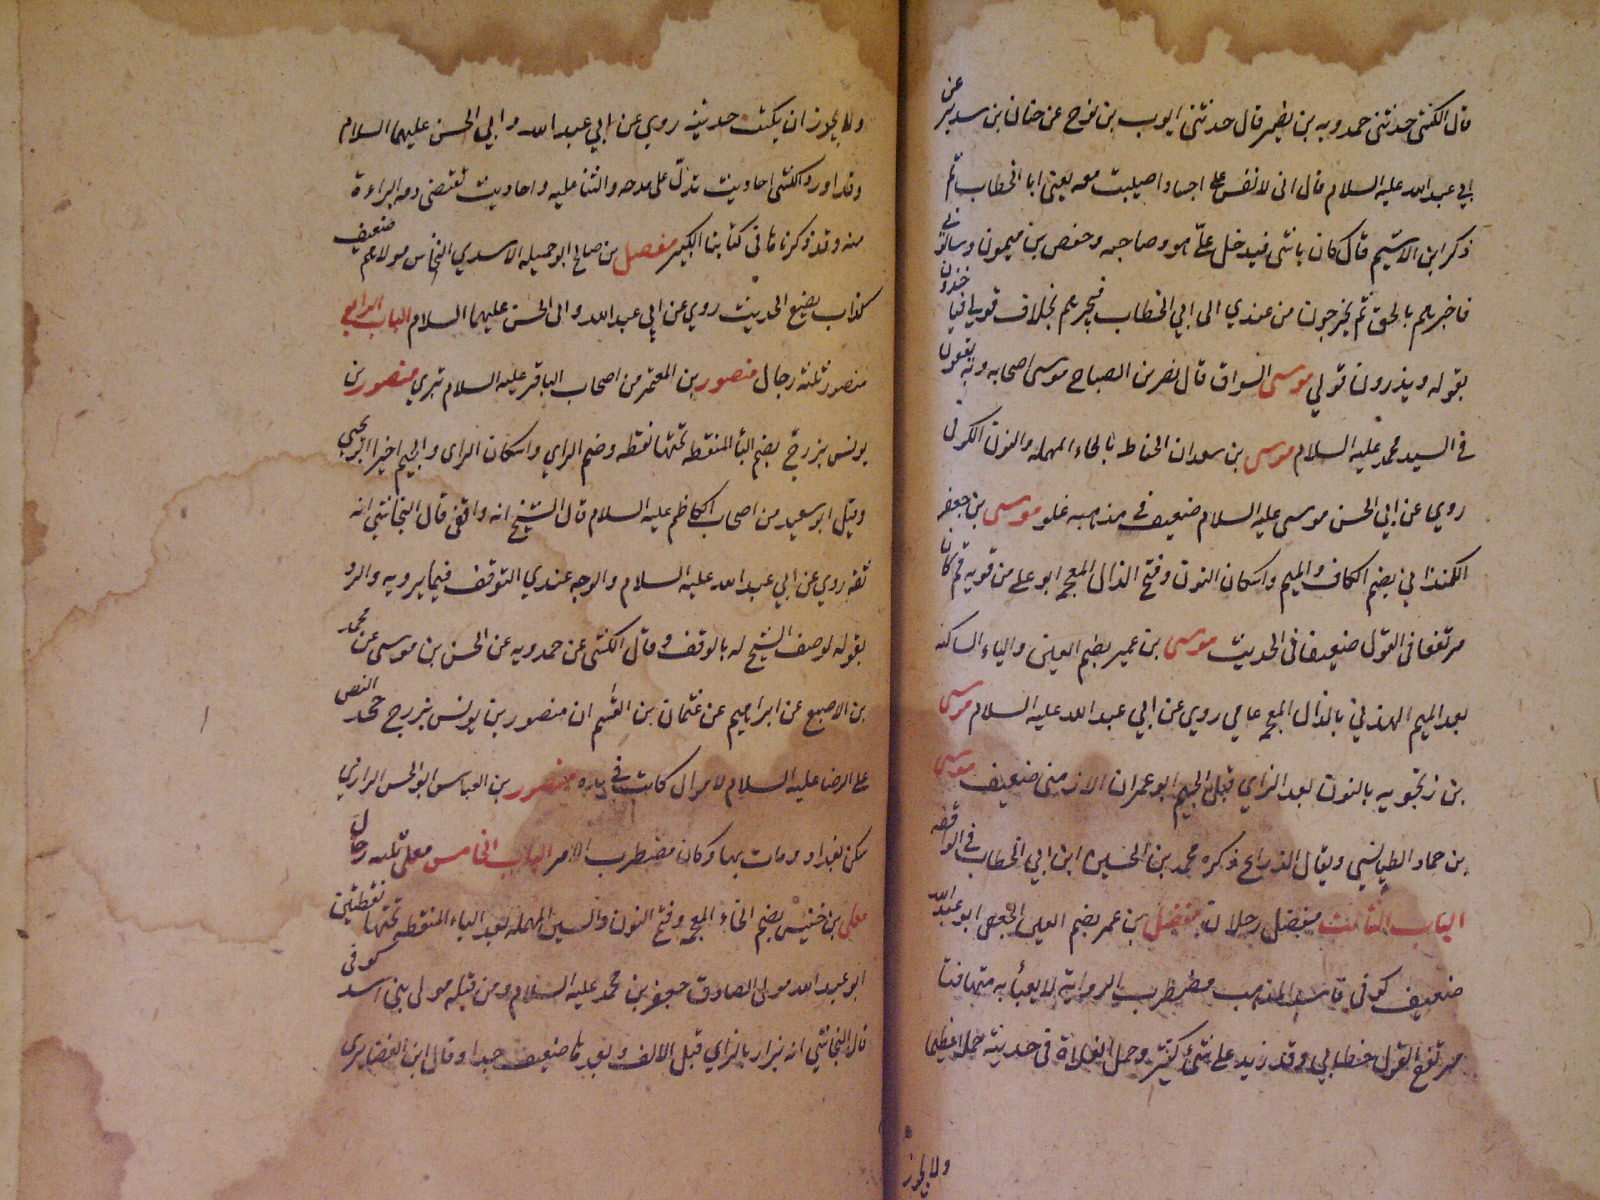 قال الكشي حدثني حمدويه بن نصير قال حدثني ايوب بن نوح عن حنان بن سدير عن
ابي عبد الله عليه السلام قال اني لانفس على اجساد اصيبت معه يعني ابا الخطاب ثم
ذكر ابن الاشيم قال كان ياتني فيدخل علي هو وصاحبه وحفص بن ميمون ويسالوني
فاخبرهم بالحق ثم يخرجون من عندي الى ابي الخطاب فيخبرهم بخلاف قولي فياخذون
بقوله ويذرون قولي موسى السواق قال نصر بن الصباح موسى اصحابه يقعون
في السيد محمد عليه السلام موسى بن سعدان الحناط بالحاء المهمله والنون الكوفي
روى عن ابي الحسن موسى عليه السلام ضعيف في مذهبه غلو موسى بن جعفر
الكمنذاني بضم الكاف والميم واسكان النون وفتح الذال المعجمه ابو علي من قريه قم كان
مرتفعا في القول ضعيفا في الحديث موسى بن عمير بضم العين والياء الساكنه
بعد الميم الهذلي بالذال المعجمه عامي روى عن ابي عبد الله عليه السلام موسى
بن زنجويه بالنون بعد الزاي قبل الجيم ابو عمران الارمني ضعيف موسى
بن حماد الطيالسي ويقال الذراع ذكره محمد بن الحسين ابن ابي الخطاب في الواقفه
الباب الثالث مفضل رجلان مفضل بن عمر بضم العين الجعفي ابو عبد الله
ضعيف كوفي فاسد المذهب مضطرب الرواية لا يعبأ به متهافت
مرتفع القول خطابي وقد زيد عليه شئ كثير وحمل الغلاة في حديثه حملا عظيما
ولا يجوز
ولا يجوز ان يكتب حديثه روى عن ابي عبد الله وابي الحسن عليهما السلام
وقد اورد الكشي احاديث تدل على مدحه والثنا عليه واحاديث تقتضي ذمه والبراءة
منه وقد ذكرناها في كتابنا الكبير مفضل بن صالح ابو جميله الاسدي النخاس مولاهم ضعيف
كذاب يضع الحديث روى عن ابي عبد الله وابي الحسن عليهما السلام الباب الرابع
منصور ثلثه رجال منصور بن المعتمر من اصحاب الباقر عليه السلام تبري منصور بن
يونس بزرج بضم الباء المنقطه تحتها نقطه وضم الزاي واسكان الراي والجيم اخيرا ابو يحيى
وقيل ابو سعيد من اصحاب الكاظم عليه السلام قال الشيخ انه واقفي قال النجاشي انه
ثقه روى عن ابي عبد الله عليه السلام والوجه عندي التوقف فيما يرويه والرد
بقوله لوصف الشيخ له بالوقف وقال الكشي عن حمدويه عن الحسن بن موسى عن محمد
بن الاصبغ عن ابراهيم عن عثمان بن القسم ان منصور بن يونس بزرج جحد النص
على الرضا عليه السلام لاموال كانت في يده منصور بن العباس ابو الحسن الرازي
سكن بغداد ومات بها وكان مضطرب الامر الباب الخامس معلى ثلثه رجال
معلى بن خنيس بضم الخاء المعجمه وفتح النون والسين المهمله بعد الياء المنقطه تحتها نقطتين
ابو عبد الله مولى الصادق جعفر بن محمد عليه السلام ومن قبله مولى بني اسد كوفي
قال النجاشي انه بزاز بالزاي قبل الالف وبعدها ضعيف جدا وقال ابن الغضايري